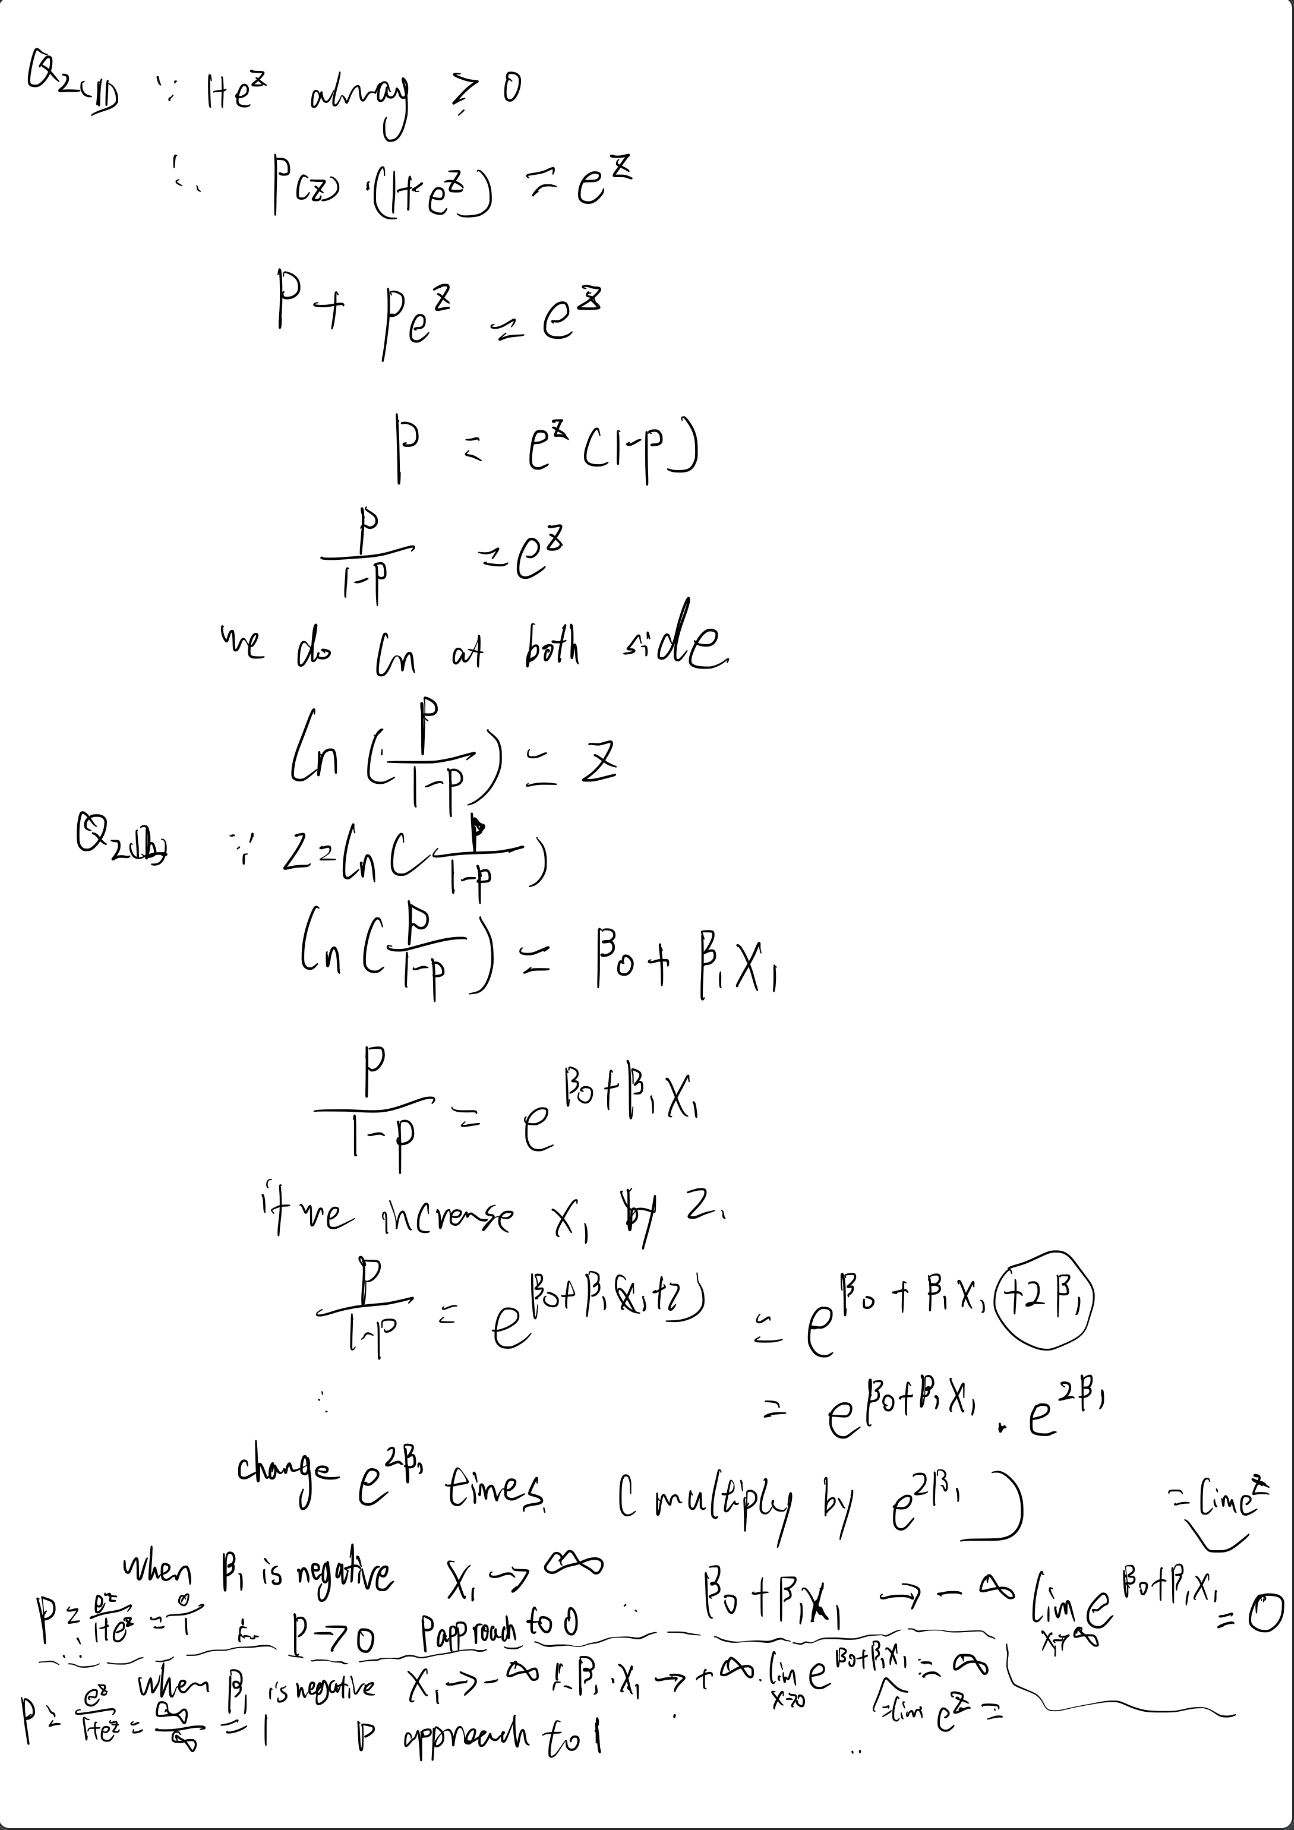 Q2(1) ∵ 1+e^z alway ≥ 0
∴ P(z) · (1+e^z) = e^z
P + Pe^z = e^z
P = e^z (1-P)
P/(1-P) = e^z
we do ln at both side
ln (P/(1-P)) = z
Q2(b) ∵ z = ln (P/(1-P))
ln (P/(1-P)) = β0 + β1 X1
P/(1-P) = e^(β0+β1X1)
if we increase X1 by 2.
P/(1-P) = e^(β0+β1(X1+2)) = e^(β0+β1X1+2β1)
= e^(β0+β1X1) · e^(2β1)
∴
change e^(2β1) times. (multiply by e^(2β1))
= lim e^z
when β1 is negative X1 → ∞ β0+β1X1 → -∞ lim X1→∞ e^(β0+β1X1) = 0
P = e^z/(1+e^z) = 0/1 P → 0 P approach to 0
when β1 is negative X1 → -∞ ∴ β1·X1 → +∞. lim X→∞ e^(β0+β1X1) = ∞
P = e^z/(1+e^z) = ∞/∞ = 1 P approach to 1 = lim e^z =